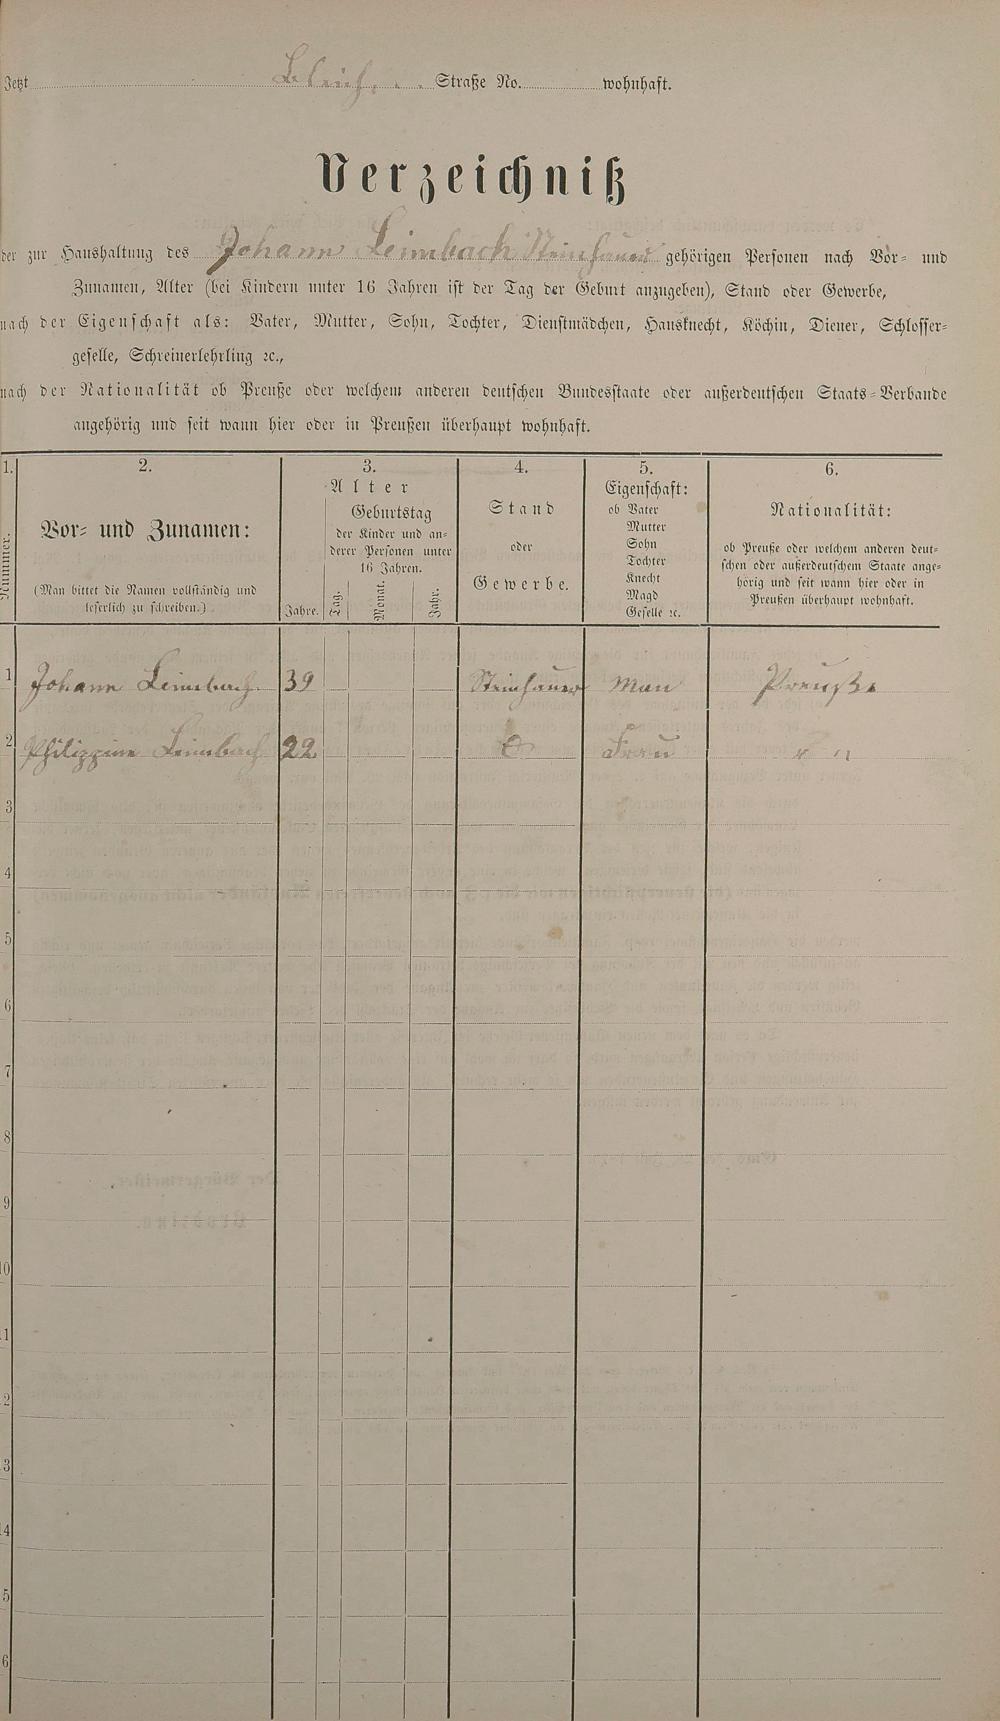 Jetzt Bleich. . . Straße No. wohnhaft.
Verzeichniß
der zur Haushaltung des Johann Leimbach Steinhauer gehörigen Personen nach Vor- und
Zunamen, Alter (bei Kindern unter 16 Jahren ist der Tag der Geburt anzugeben), Stand oder Gewerbe,
nach der Eigenschaft als: Vater, Mutter, Sohn, Tochter, Dienstmädchen, Hausknecht, Köchin, Diener, Schlosser-
geselle, Schreinerlehrling ꝛc.,
nach der Nationalität ob Preuße oder welchem anderen deutschen Bundesstaate oder außerdeutschen Staats-Verbande
angehörig und seit wann hier oder in Preußen überhaupt wohnhaft.
1. 2. 3. 4. 5. 6.
Nummer.
Vor- und Zunamen:
(Man bittet die Namen vollständig und
leserlich zu schreiben.)
Alter
Jahre.
Geburtstag
der Kinder und an-
derer Personen unter
16 Jahren.
Tag. Monat. Jahr.
Stand
oder
Gewerbe.
Eigenschaft:
ob Vater
Mutter
Sohn
Tochter
Knecht
Magd
Geselle ꝛc.
Nationalität:
ob Preuße oder welchem anderen deut-
schen oder außerdeutschem Staate ange-
hörig und seit wann hier oder in
Preußen überhaupt wohnhaft.
1 Johann Leimbach. 39 Steinhauer Man Preuße
2 Philippine Leimbach 22 Frau " "
3
4
5
6
7
8
9
10
1
2
3
4
5
6